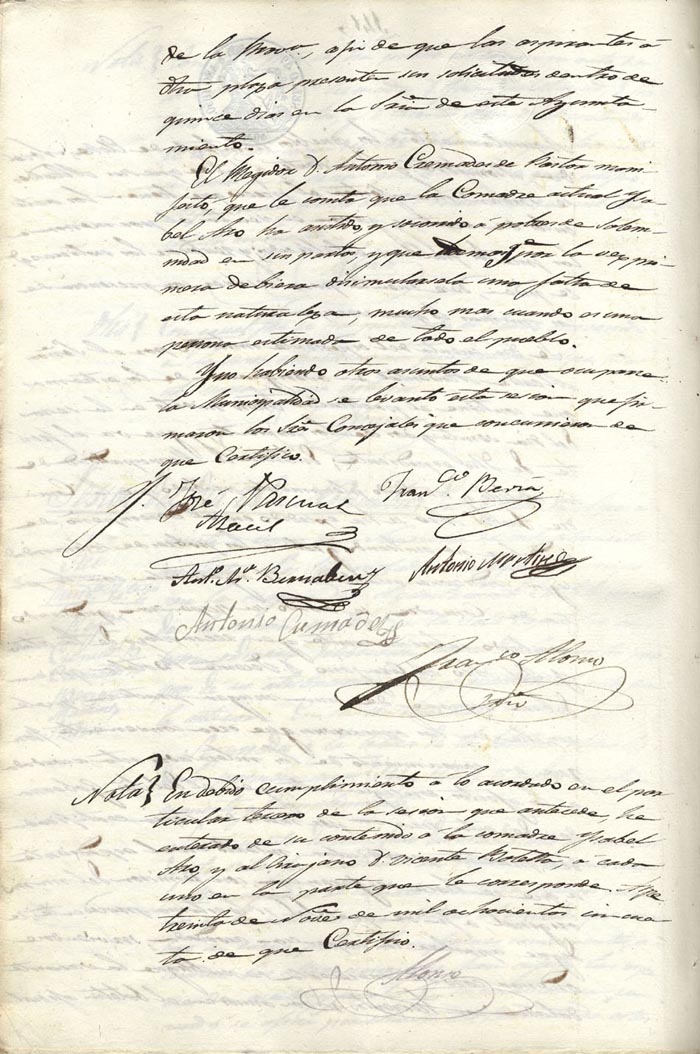 de la Prova, a fin de que los aspirantes á
dha plaza presenten sus solicitudes dentro de
quince dias en la Sria de este Ayunta-
miento.
El Regidor D. Antonio Cremades de Pastor mani-
festó, que le consta que la Comadre actual Ysa-
bel Aso ha asistido, y socorrido á pobres de solem-
nidad en sus partos, y que por la vez pri-
mera debiera disimularsela una falta de
esta naturaleza, mucho mas cuando es una
persona estimada de todo el pueblo.
Y no habiendo otros asuntos de que ocuparse
la Municipalidad se levantó esta sesion que fir-
maron los Sres Concejales que concurrieron de
que Certifico.
José Pascual Franco
Anto Ma Bernabeu Antonio
Antonio Cremades
Franco Alonso
Srio
Nota En debido cumplimiento á lo acordado en el par-
ticular tercero de la sesion que antecede, he
enterado de su contenido á la comadre Ysabel
Aso, y al Cirujano D. Vicente Botella, á cada
uno en la parte que le corresponde.
treinta de Nobre de mil ochocientos cincuen-
ta de que Certifico.
Alonso